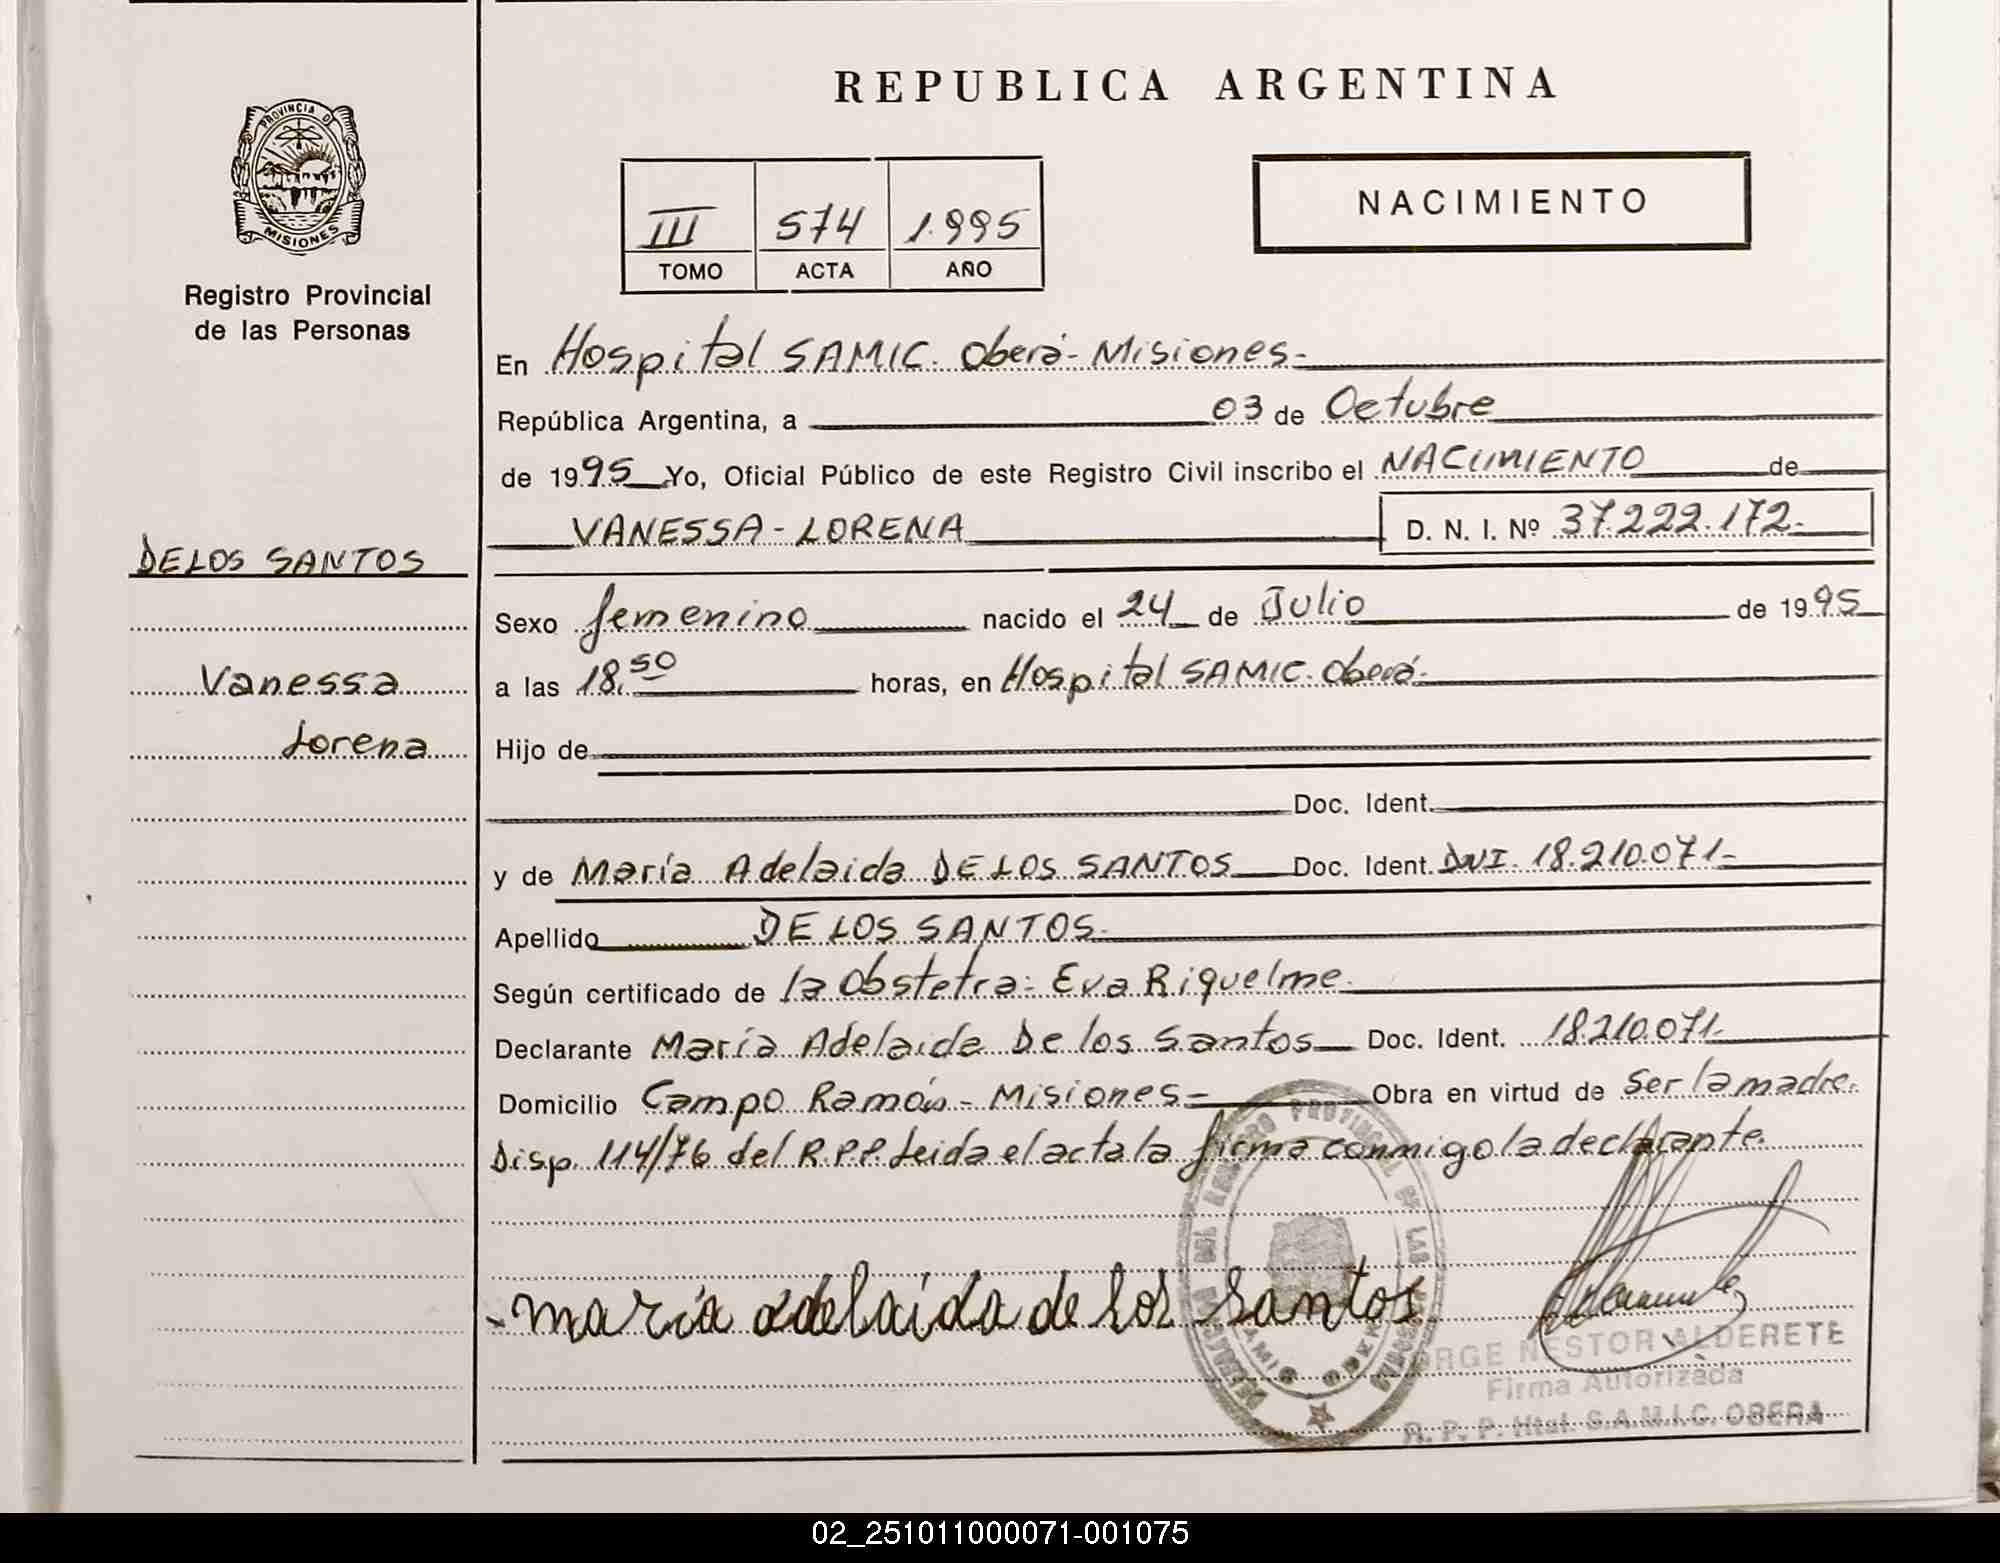 REPUBLICA ARGENTINA
PROVINCIA D
MISIONES
Registro Provincial
de las Personas
III 574 1.995
TOMO ACTA AÑO
NACIMIENTO
En Hospital SAMIC. Oberá- Misiones-
República Argentina, a 03 de Octubre
de 1995 Yo, Oficial Público de este Registro Civil inscribo el NACIMIENTO de
VANESSA - LORENA D. N. I. Nº 37.222.172-
DE LOS SANTOS
Vanessa
Lorena
Sexo femenino nacido el 24 de Julio de 1995
a las 18.50 horas, en Hospital SAMIC. Oberá-
Hijo de
Doc. Ident.
y de María Adelaida DE LOS SANTOS Doc. Ident. DNI. 18.210.071-
Apellido DE LOS SANTOS-
Según certificado de la Obstetra: Eva Riquelme.
Declarante María Adelaida De los Santos Doc. Ident. 18.210.071-
Domicilio Campo Ramón - Misiones - Obra en virtud de Ser la madre.
Disp. 114/76 del R.P.P. Leida el acta la firma conmigo la declarante.
- maría adelaida de los santos
PROVINCIAL DE LAS
ORGE NESTOR ALDERETE
Firma Autorizada
R. P. P. Htal. S.A.M.I.C. OBERA
02_251011000071-001075